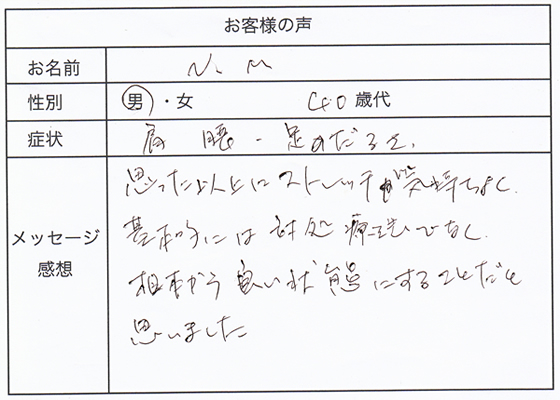 お客様の声
お名前 N. M
性別 男・女 40歳代
症状 肩 腰・足のだるさ、
メッセージ
感想
思った以上にストレッチが気持ちよく
基本的には対処療法でなく
根本から良い状態にすることだと
思いました